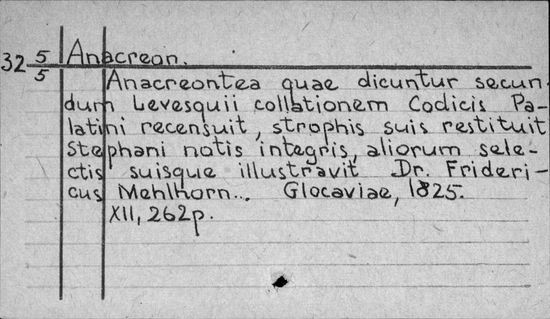 32 5/5 Anacreon.
Anacreontea quae dicuntur secun-
dum Levesquii collationem Codicis Pa-
latini recensuit, strophis suis restituit
Stephani notis integris, aliorum sele-
ctis suisque illustravit Dr. Frideri-
cus Mehlhorn... Glocaviae, 1825.
XII, 262p.